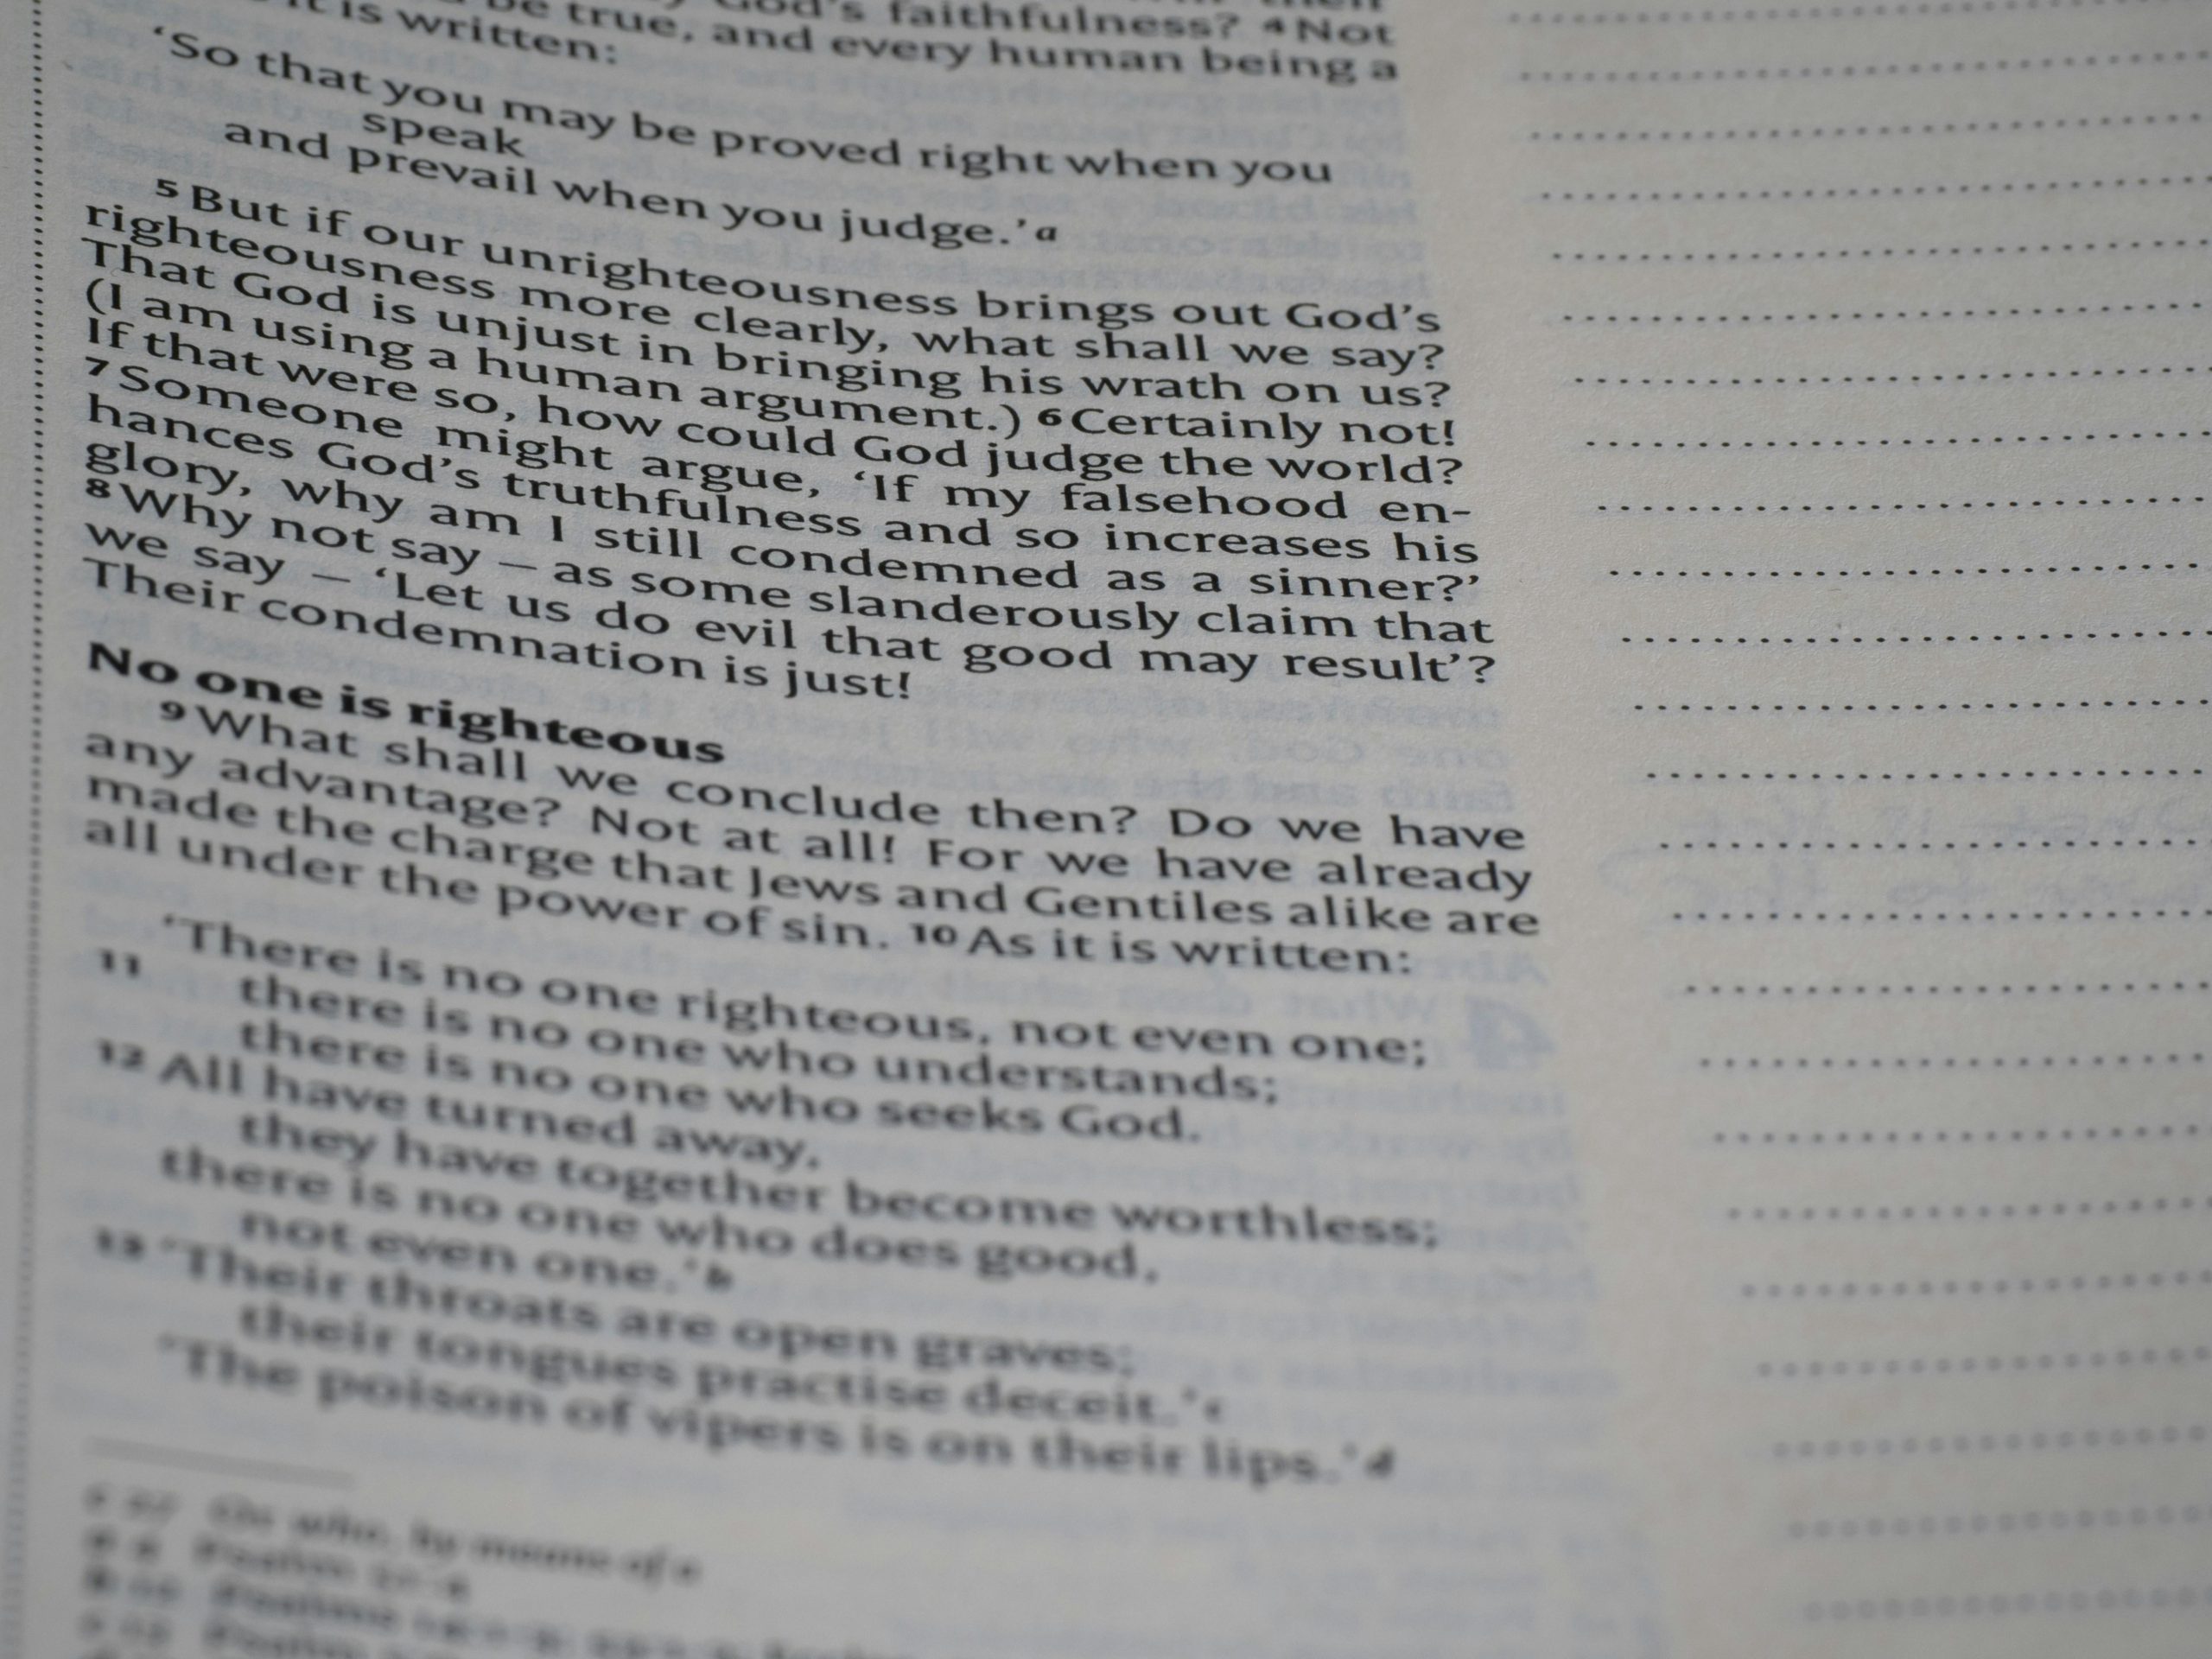 God's faithfulness? 4 Not
be true, and every human being a
it is written:
‘So that you may be proved right when you
speak
and prevail when you judge.’ a
5 But if our unrighteousness brings out God's
righteousness more clearly, what shall we say?
That God is unjust in bringing his wrath on us?
(I am using a human argument.) 6 Certainly not!
If that were so, how could God judge the world?
7 Someone might argue, ‘If my falsehood en-
hances God's truthfulness and so increases his
glory, why am I still condemned as a sinner?’
8 Why not say – as some slanderously claim that
we say – ‘Let us do evil that good may result’?
Their condemnation is just!
No one is righteous
9 What shall we conclude then? Do we have
any advantage? Not at all! For we have already
made the charge that Jews and Gentiles alike are
all under the power of sin. 10 As it is written:
‘There is no one righteous, not even one;
11 there is no one who understands;
there is no one who seeks God.
12 All have turned away,
they have together become worthless;
there is no one who does good,
not even one.’ b
13 ‘Their throats are open graves;
their tongues practise deceit.’ c
‘The poison of vipers is on their lips.’ d
Or who, by means of a
Psalm
Psalms
Psalm